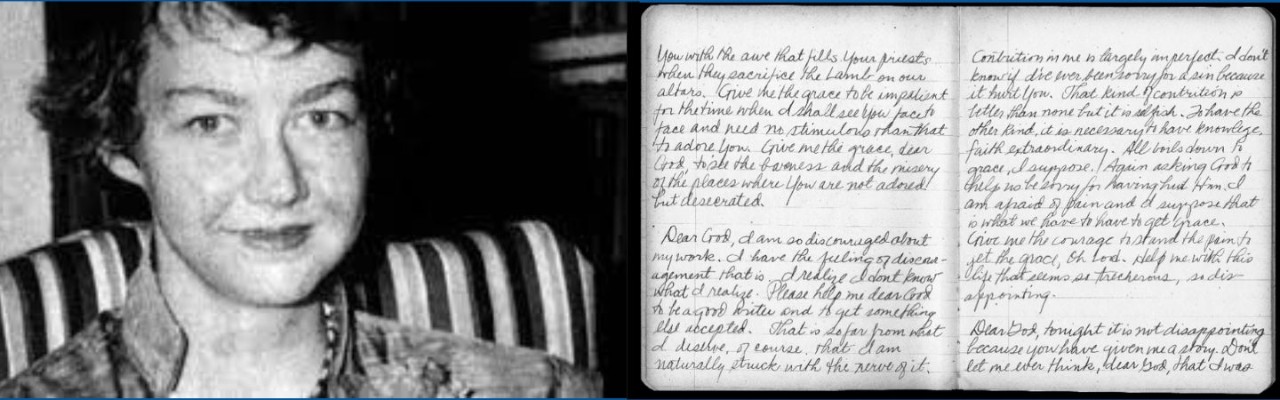 You with the awe that fills Your priests
when they sacrifice the Lamb on our
altars. Give me the grace to be impatient
for the time when I shall see You face to
face and need no stimulous than that
to adore You. Give me the grace, dear
God, to see the bareness and the misery
of the places where You are not adored
but desecrated.
Dear God, I am so discouraged about
my work. I have the feeling of discour-
agement that is. I realize I dont know
what I realize. Please help me dear God
to be a good writer and to get something
else accepted. That is so far from what
I deserve, of course, that I am
naturally struck with the nerve of it.
Contrition in me is largely imperfect. I don't
know if I've ever been sorry for a sin because
it hurt You. That kind of contrition is
better than none but it is selfish. To have the
other kind, it is necessary to have knowlege,
faith extraordinary. All boils down to
grace, I suppose. Again asking God to
help us be sorry for having hurt Him. I
am afraid of pain and I suppose that
is what we have to have to get grace.
Give me the courage to stand the pain to
get the grace, Oh Lord. Help me with this
life that seems so trecherous, so dis-
appointing.
Dear God, tonight it is not disappointing
because you have given me a story. Don't
let me ever think, dear God, that I was